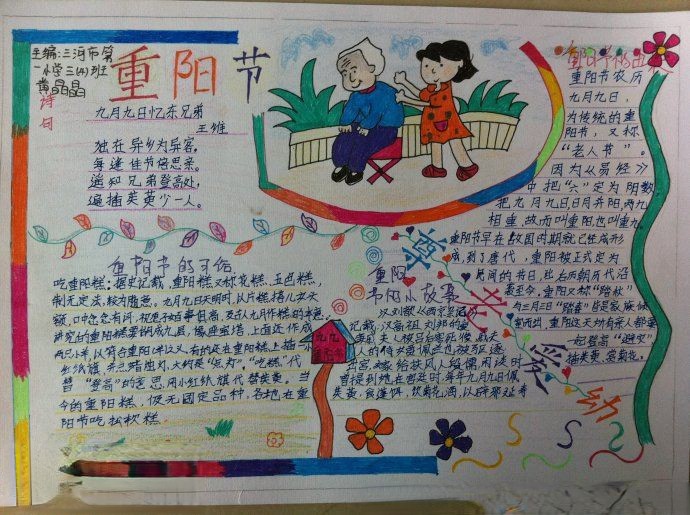 主编:三河市第
一小学三(4)班
黄晶晶
重阳节
诗句
九月九日忆东兄弟
王维
独在异乡为异客,
每逢佳节倍思亲。
遥知兄弟登高处,
遍插茱萸少一人。
重阳节农历
九月九日,
为传统的重
阳节,又称
“老人节”。
因为《易经》
中把“六”定为阴数
把九月九,日月并阳两九
相重,故而叫重阳也叫重九。
重阳节早在战国时期就已经成形
成,到了唐代,重阳被正式定为
民间的节日,此后历朝历代沿
袭至今,重阳又称“踏秋”
与三月三日“踏春”皆是家族倾
室而出,重阳这天所有亲人都要
一起登高“避灾”
插茱萸、赏菊花。
重阳节的习俗
吃重阳糕:据史记载,重阳糕又称花糕、五色糕,
制无定法,较为随意。九月九日天明时,以片糕搭儿女头
额,口中念念有词,祝愿子女百事俱高,及古人九月作糕的本意。
讲究的重阳糕要做成九层,像座宝塔,上面还作成
两只小羊,以符合重阳(羊)之义。有的还在重阳糕上插一
红纸旗,并点蜡烛灯。大约是“点灯”、“吃糕”代
替“登高”的意思,用小红纸旗代替茱萸。当
今的重阳糕,仍无固定品种,各地在重
阳节吃松软糕
重阳
节的小故事
记载,汉高祖刘邦的
九九
重阳节
尊老爱幼